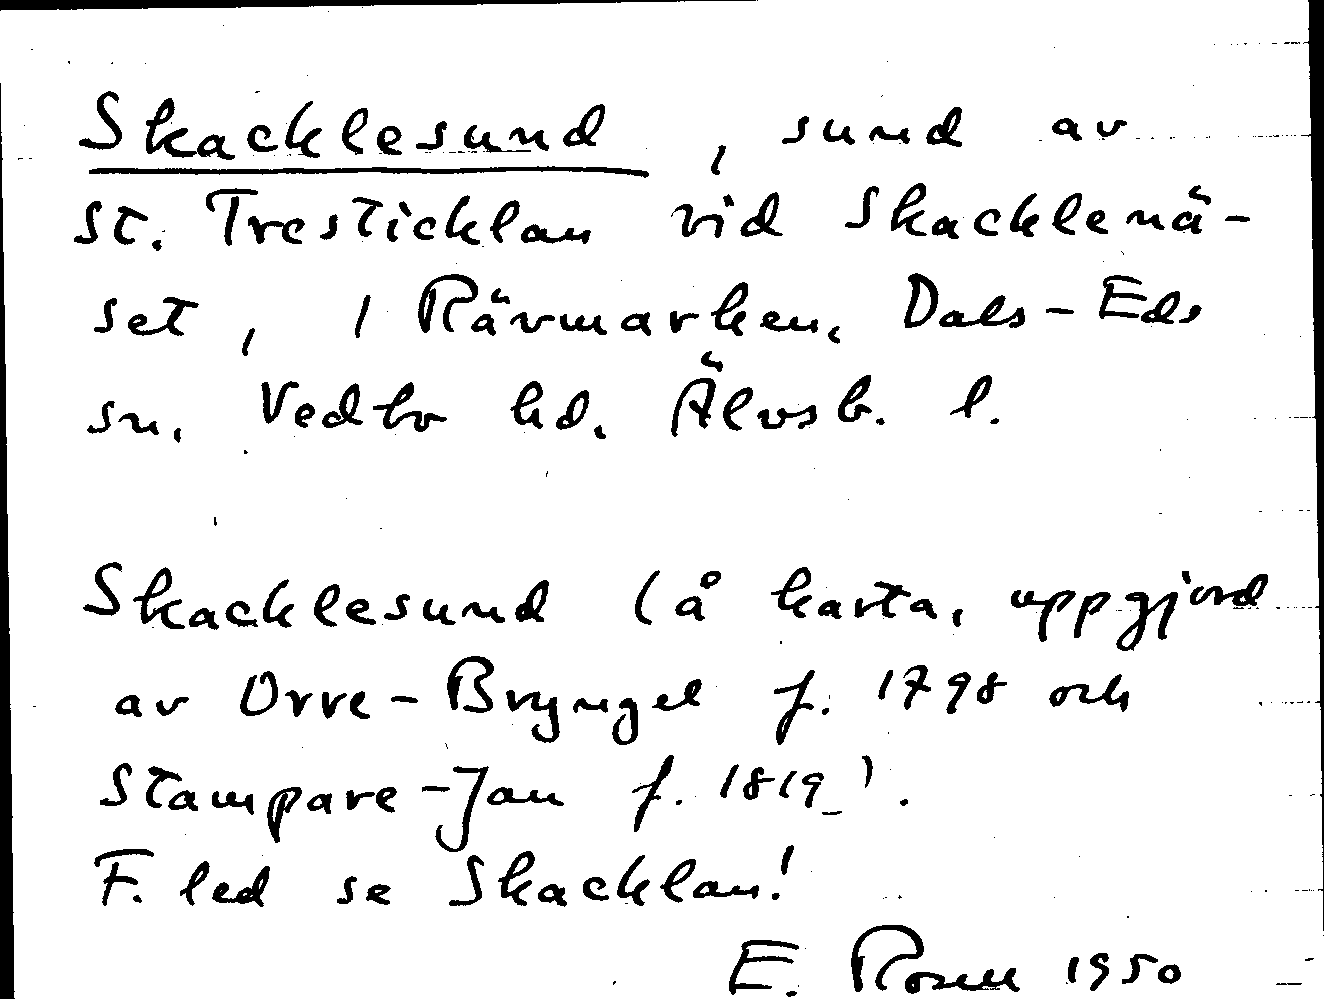 Skacklesund, sund av
St. Tresticklan vid Skacklenä-
set, i Rävmarken, Dals-Eds
sn, Vedbo hd. Älvsb. l.
Skacklesund (å karta, uppgjord
av Orre-Bryngel f. 1798 och
Stampare-Jan f. 1819).
F. led se Skacklan!
E. Rosell 1950